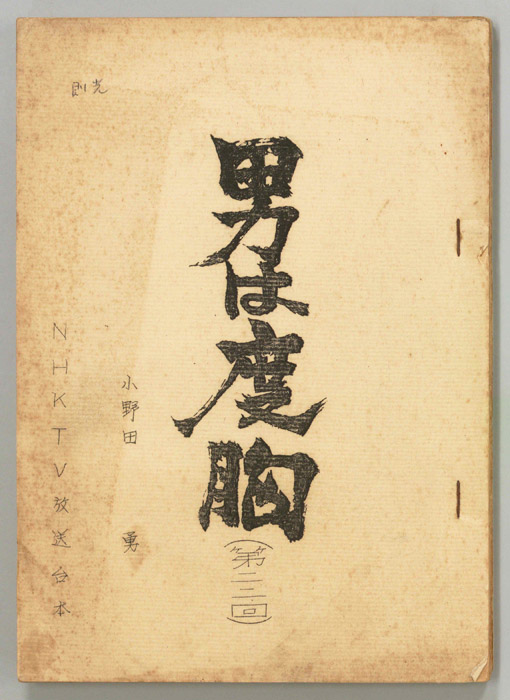 則光
男は度胸
(第二二回)
小野田 勇
NHKTV放送台本